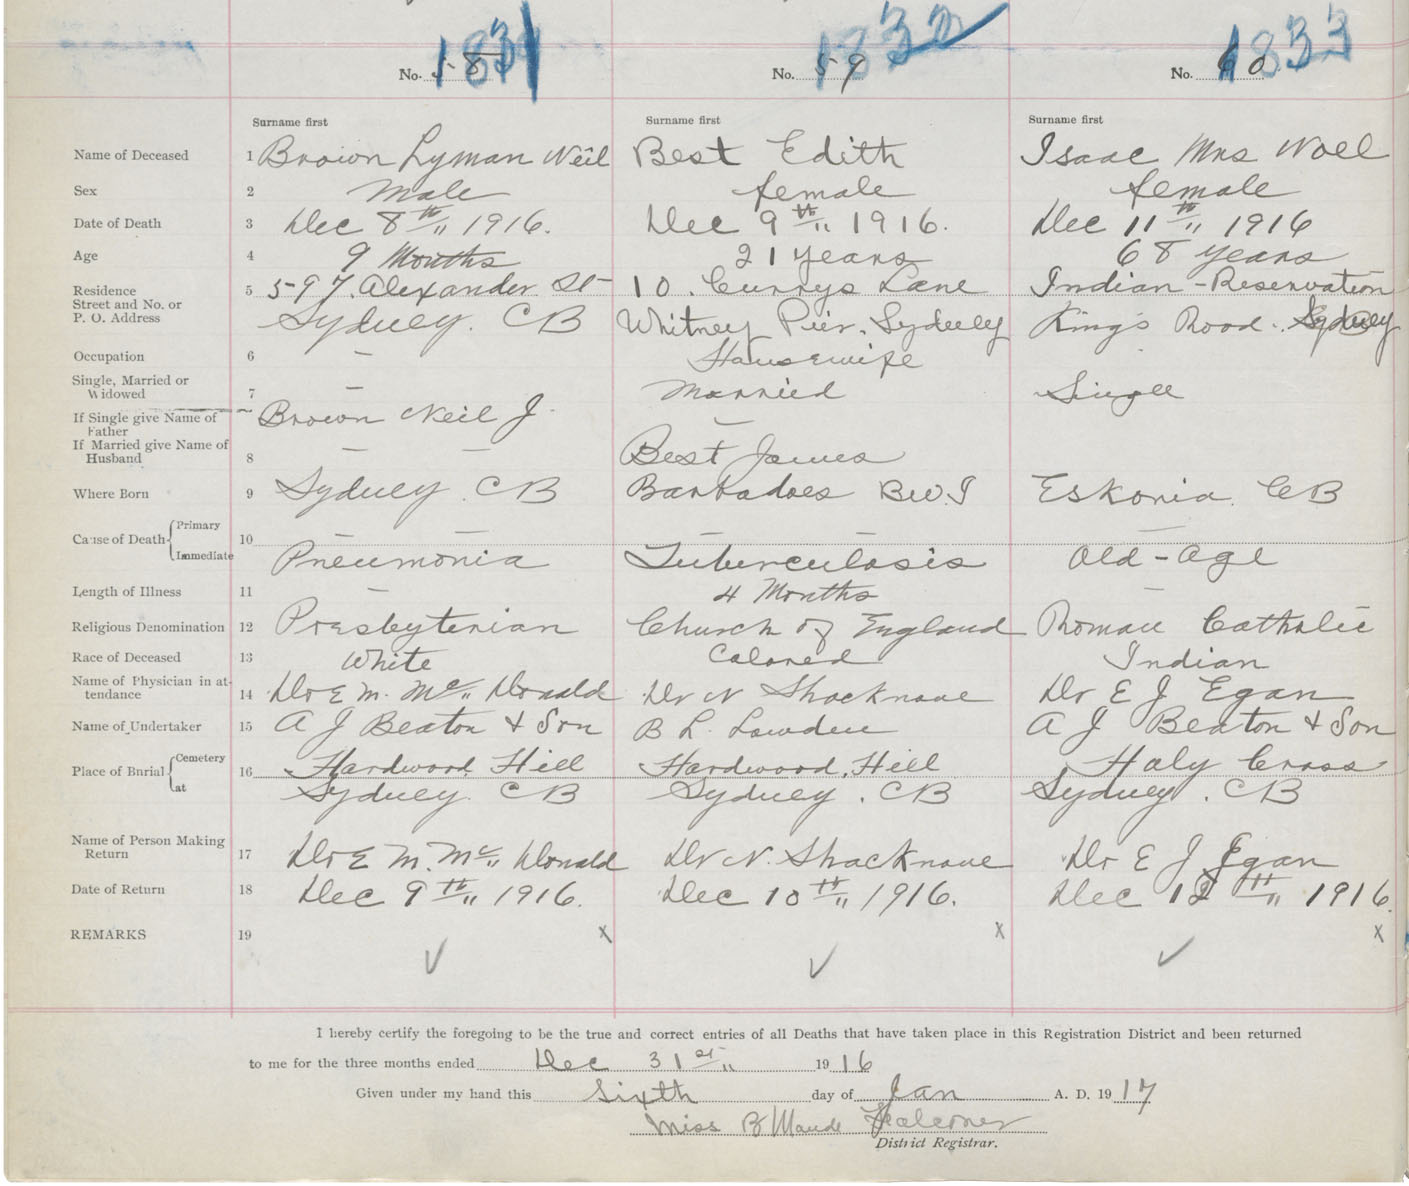 1831 1832 1833
No. 58 No. 59 No. 60
Surname first Surname first Surname first
Name of Deceased 1 Brown Lyman Neil Best Edith Isaac Mrs Noel
Sex 2 Male female female
Date of Death 3 Dec 8th 1916. Dec 9th 1916. Dec 11th 1916
Age 4 9 Months 21 years 68 years
Residence 5 597. Alexander St 10. Currys Lane Indian-Reservation
Street and No. or
P. O. Address Sydney. CB Whitney Pier, Sydney King's Road. Sydney
Occupation 6 — Housewife
Single, Married or
Widowed 7 — Married Single
If Single give Name of
Father Brown Neil J. —
If Married give Name of
Husband 8 — — Best James
Where Born 9 Sydney. CB Barbadoes B.W.I Eskonia. CB
Cause of Death Primary 10 — — —
Immediate Pneumonia Tuberculosis Old-Age
Length of Illness 11 — 4 Months —
Religious Denomination 12 Presbyterian Church of England Roman Catholic
Race of Deceased 13 White Colored Indian
Name of Physician in at-
tendance 14 Dr E M. Mc Donald Dr N Shacknove Dr E J Egan
Name of Undertaker 15 A J Beaton & Son B L. Lowden A J Beaton & Son
Place of Burial Cemetery 16 Hardwood Hill Hardwood. Hill Holy Cross
at Sydney. CB Sydney. CB Sydney. CB
Name of Person Making
Return 17 Dr E M. Mc Donald Dr N. Shacknove Dr E J Egan
Date of Return 18 Dec 9th 1916. Dec 10th 1916. Dec 12th 1916.
REMARKS 19 x x x
I hereby certify the foregoing to be the true and correct entries of all Deaths that have taken place in this Registration District and been returned
to me for the three months ended Dec 31st 1916
Given under my hand this Sixth day of Jan A. D. 1917
Miss B Maude Falconer
District Registrar.